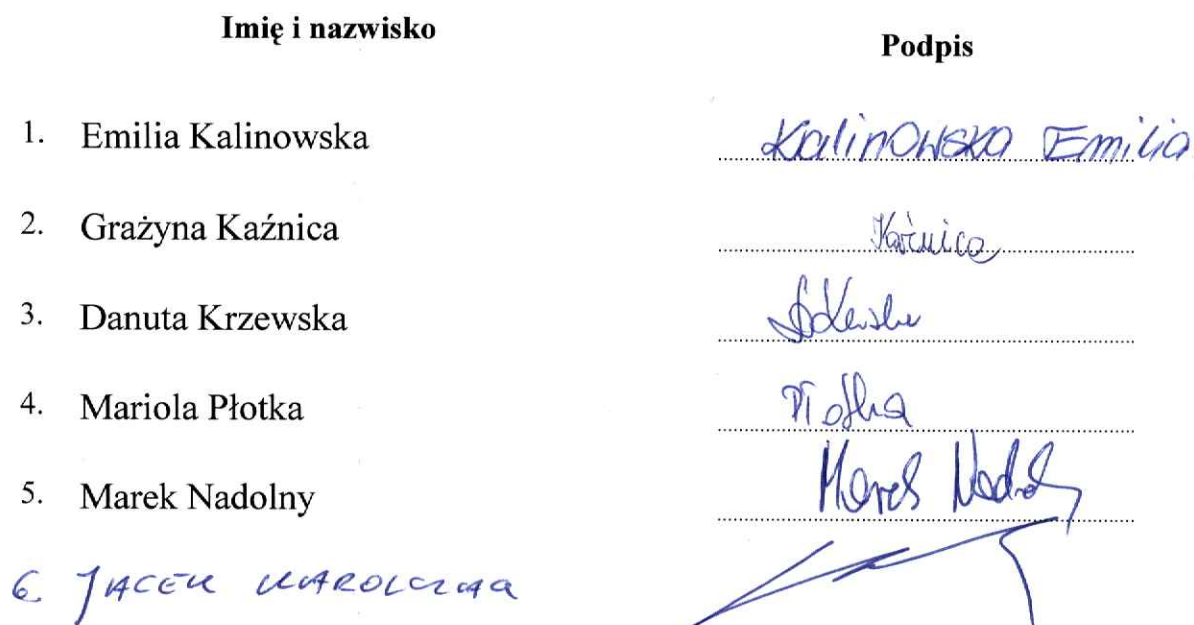 Imię i nazwisko Podpis
1. Emilia Kalinowska Kalinowska Emilia
2. Grażyna Kaźnica Kaźnica
3. Danuta Krzewska
4. Mariola Płotka Płotka
5. Marek Nadolny Marek Nadolny
6. JACEK